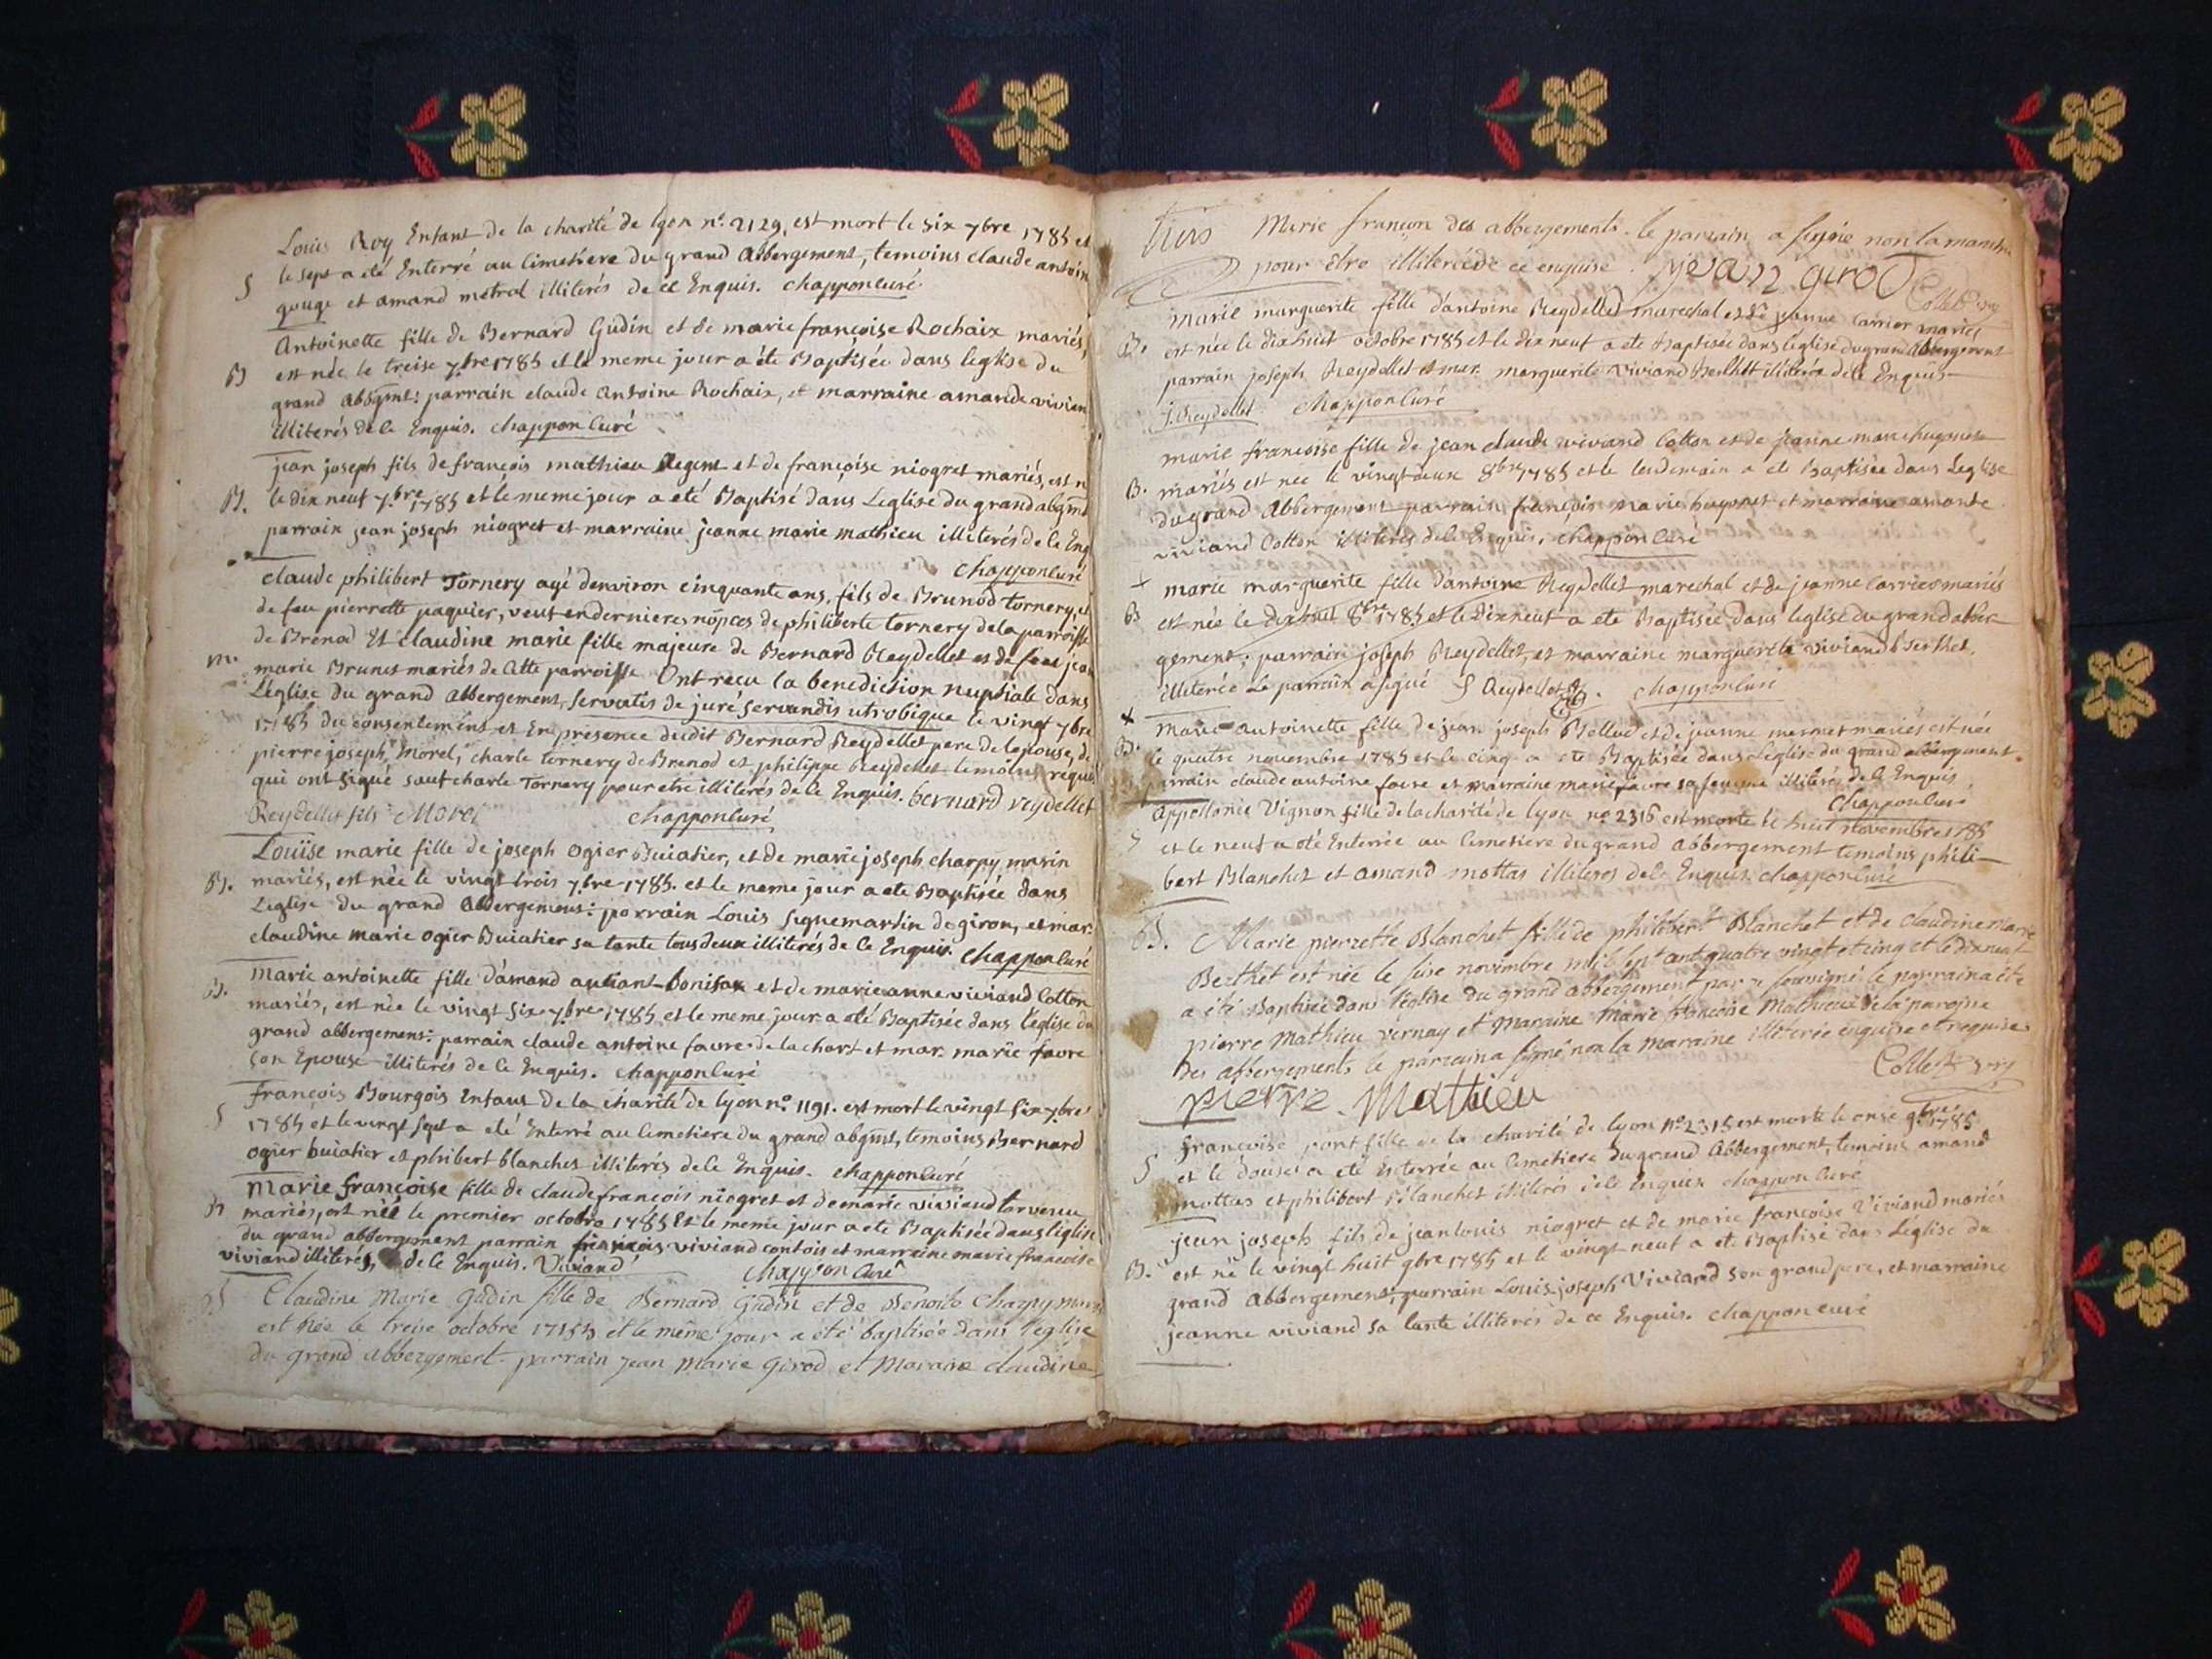 Louis Roy Enfant de la charité de lyon n.º 2129, est mort le six 7bre 1785 et
S le sept a été Enterré au Cimetiere du grand Abbergement, temoins claude antoin
gouge et amand metral illiterés de ce Enquis. chappon curé
Antoinette fille de Bernard Gudin et de marie françoise Rochaix mariés,
B est née le treise 7bre 1785 et le meme jour a été Baptisée dans leglise du
grand abbgmt: parrain claude antoine Rochaix, et marraine amande vivian
illiterés de ce Enquis. chappon curé
jean joseph fils de françois mathieu Regent et de françoise niogret mariés, est n
B. le dix neuf 7.bre 1785 et le meme jour a eté Baptisé dans Leglise du grand abgmt
parrain jean joseph niogret et marraine jeanne marie mathieu illiterés de ce Enq
chappon curé
claude philibert Tornery agé denviron cinquante ans, fils de Brunod tornery, et
de feu pierrette paquier, veuf en dernieres nopces de philiberte tornery de la parroisse
de Brenod Et claudine marie fille majeure de Bernard Reydellet et de feue jean
m. marie Brunet mariés de cette parroisse Ont reçu la benediction nuptiale dans
Léglise du grand abbergement, servatis de juré servandis utrobique le vingt 7bre
1785 du consentement et En presence dudit Bernard Reydellet pere de lepouse, de
pierre joseph Morel, charle tornery de Brenod et philippe Reydellet temoins requis
qui ont signé sauf charle Tornery pour etre illiterés de ce Enquis. bernard reydellet
Reydellet fils Morel chappon curé
Louise marie fille de joseph ogier Buiatier, et de marie joseph charpy marin
B. mariés, est née le vingt trois 7bre 1785. et le meme jour a ete Baptisée dans
Leglise du grand Abbergement: parrain Louis seignemartin de giron, et mar:
claudine marie ogier Buiatier sa tante tous deux illiterés de ce Enquis. chappon curé
B. marie antoinette fille d'amand antiant-bonifax et de marie anne viviand Cotton
mariés, est née le vingt six 7bre 1785 et le meme jour a eté Baptisée dans l'eglise du
grand abbergement: parrain claude antoine favre de la chart et mar. marie favre
son Epouse illiterés de ce Enquis. chappon curé
françois Bourgois Enfant de la charité de lyon n.º 1191. est mort le vingt six 7bre
S 1785 et le vingt sept a eté Enterré au Cimetiere du grand abgmt, temoins Bernard
ogier buiatier et philibert blanchet illiterés de ce Enquis. chappon curé
Marie françoise fille de claude françois niogret et de marie viviand tervenu
B mariés, est née le premier octobre 1785 Et le meme jour a ete Baptisée dans l'eglise
du grand abbergement parrain françois viviand contois et marraine marie francoise
viviand illiterés, de ce Enquis. Viviand chappon curé
B Claudine Marie Gudin fille de Bernard Gudin et de Benoite Charpy mariés
est née le treise octobre 1785 et le même jour a été baptisée dans l'eglise
du grand abbergement parrain jean Marie Girod et Maraine claudine
Marie françon des abbergements. le parrain a signé non la maraine
pour être illiterée de ce enquise. jean girod
Collet
marie marguerite fille d'antoine Reydellet marechal et de jeanne Carrier mariés
B. est née le dix huit octobre 1785 et le dix neuf a ete baptisée dans l'église du grand Abbergement
parrain joseph Reydellet et mar. marguerite viviand Berthet illiterée de ce Enquis
J. Reydellet chappon curé
marie francoise fille de jean claude viviand Cotton et de jeanne marie hugonnet
B. mariés est née le vingt deux 8bre 1785 et le lendemain a ete baptisée dans Leglise
du grand Abbergement parrain françois marie hugonet et marraine amande
viviand Cotton illiterés de ce Enquis. chappon curé
+ marie marguerite fille d'antoine Reydellet marechal et de jeanne Carrier mariés
B est née le dix huit 8bre 1785 et le dix neuf a ete Baptisée, dans leglise du grand abber-
gement: parrain joseph Reydellet, et marraine marguerite viviand Berthet.
illiterée Le parrain a signé J Reydellet. chappon curé
+ marie antoinette fille de jean joseph Bellod et de jeanne mermet mariés est née
B. le quatre novembre 1785 et le cinq a ete Baptisée dans Leglise du grand abbergement.
parrain claude antoine favre et marraine marie favre sa femme illiterés de ce Enquis
chappon curé
Appollonie Vignon fille de la charité de lyon n.º 2316 est morte le huit novembre 1785
S et le neuf a été Enterrée au Cimetiere du grand abbergement temoins phili-
bert Blanchet et amand mottas illiteres de ce Enquis chappon curé
B. Marie pierrette Blanchet fille de philibert Blanchet et de claudine Marie
Berthet est née le seise novembre mil sept cent quatre vingt et cinq et le dixneuf
a été Baptisée dans l'église du grand abbergement par le soussigné le parrain a été
pierre Mathieu vernay et Maraine Marie francoise Mathieu de la paroisse
des abbergements le parrain a signé non la maraine illiterée enquise et requise
Collet
pierre. Mathieu
francoise pont fille de la charité de lyon n.º 2315 est morte le onse 9bre 1785
S et le douse a ete Enterrée au Cimetiere du grand Abbergement, temoins amand
mottas et philibert Blanchet illiterés de ce Enquis chappon curé
jean joseph fils de jean louis niogret et de marie francoise Viviand mariés
B. est né le vingt huit 9bre 1785 et le vingt neuf a ete Baptisé dans Léglise du
grand Abbergement; parrain Louis joseph Viviand son grand pere, et marraine
jeanne viviand sa tante illiterés de ce Enquis. chappon curé